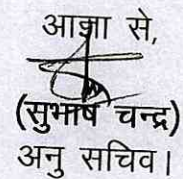 आज्ञा से,
(सुभाष चन्द्र)
अनु सचिव।